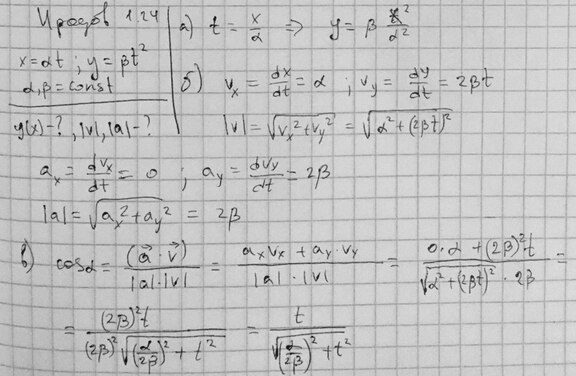 Иродов 1.24
x = αt ; y = βt²
α, β = const
y(x) - ?, |v|, |a| - ?
а) t = x/α ⇒ y = β x²/α²
б) v_x = dx/dt = α ; v_y = dy/dt = 2βt
|v| = √(v_x² + v_y²) = √(α² + (2βt)²)
a_x = dv_x/dt = 0 ; a_y = dv_y/dt = 2β
|a| = √(a_x² + a_y²) = 2β
в) cosα = (a⃗ · v⃗)/(|a|·|v|) = (a_x v_x + a_y · v_y)/(|a| · |v|) = (0·α + (2β)²t)/(√(α² + (2βt)²) · 2β) =
= (2β)²t/((2β)² √((α/2β)² + t²)) = t/√((α/2β)² + t²)